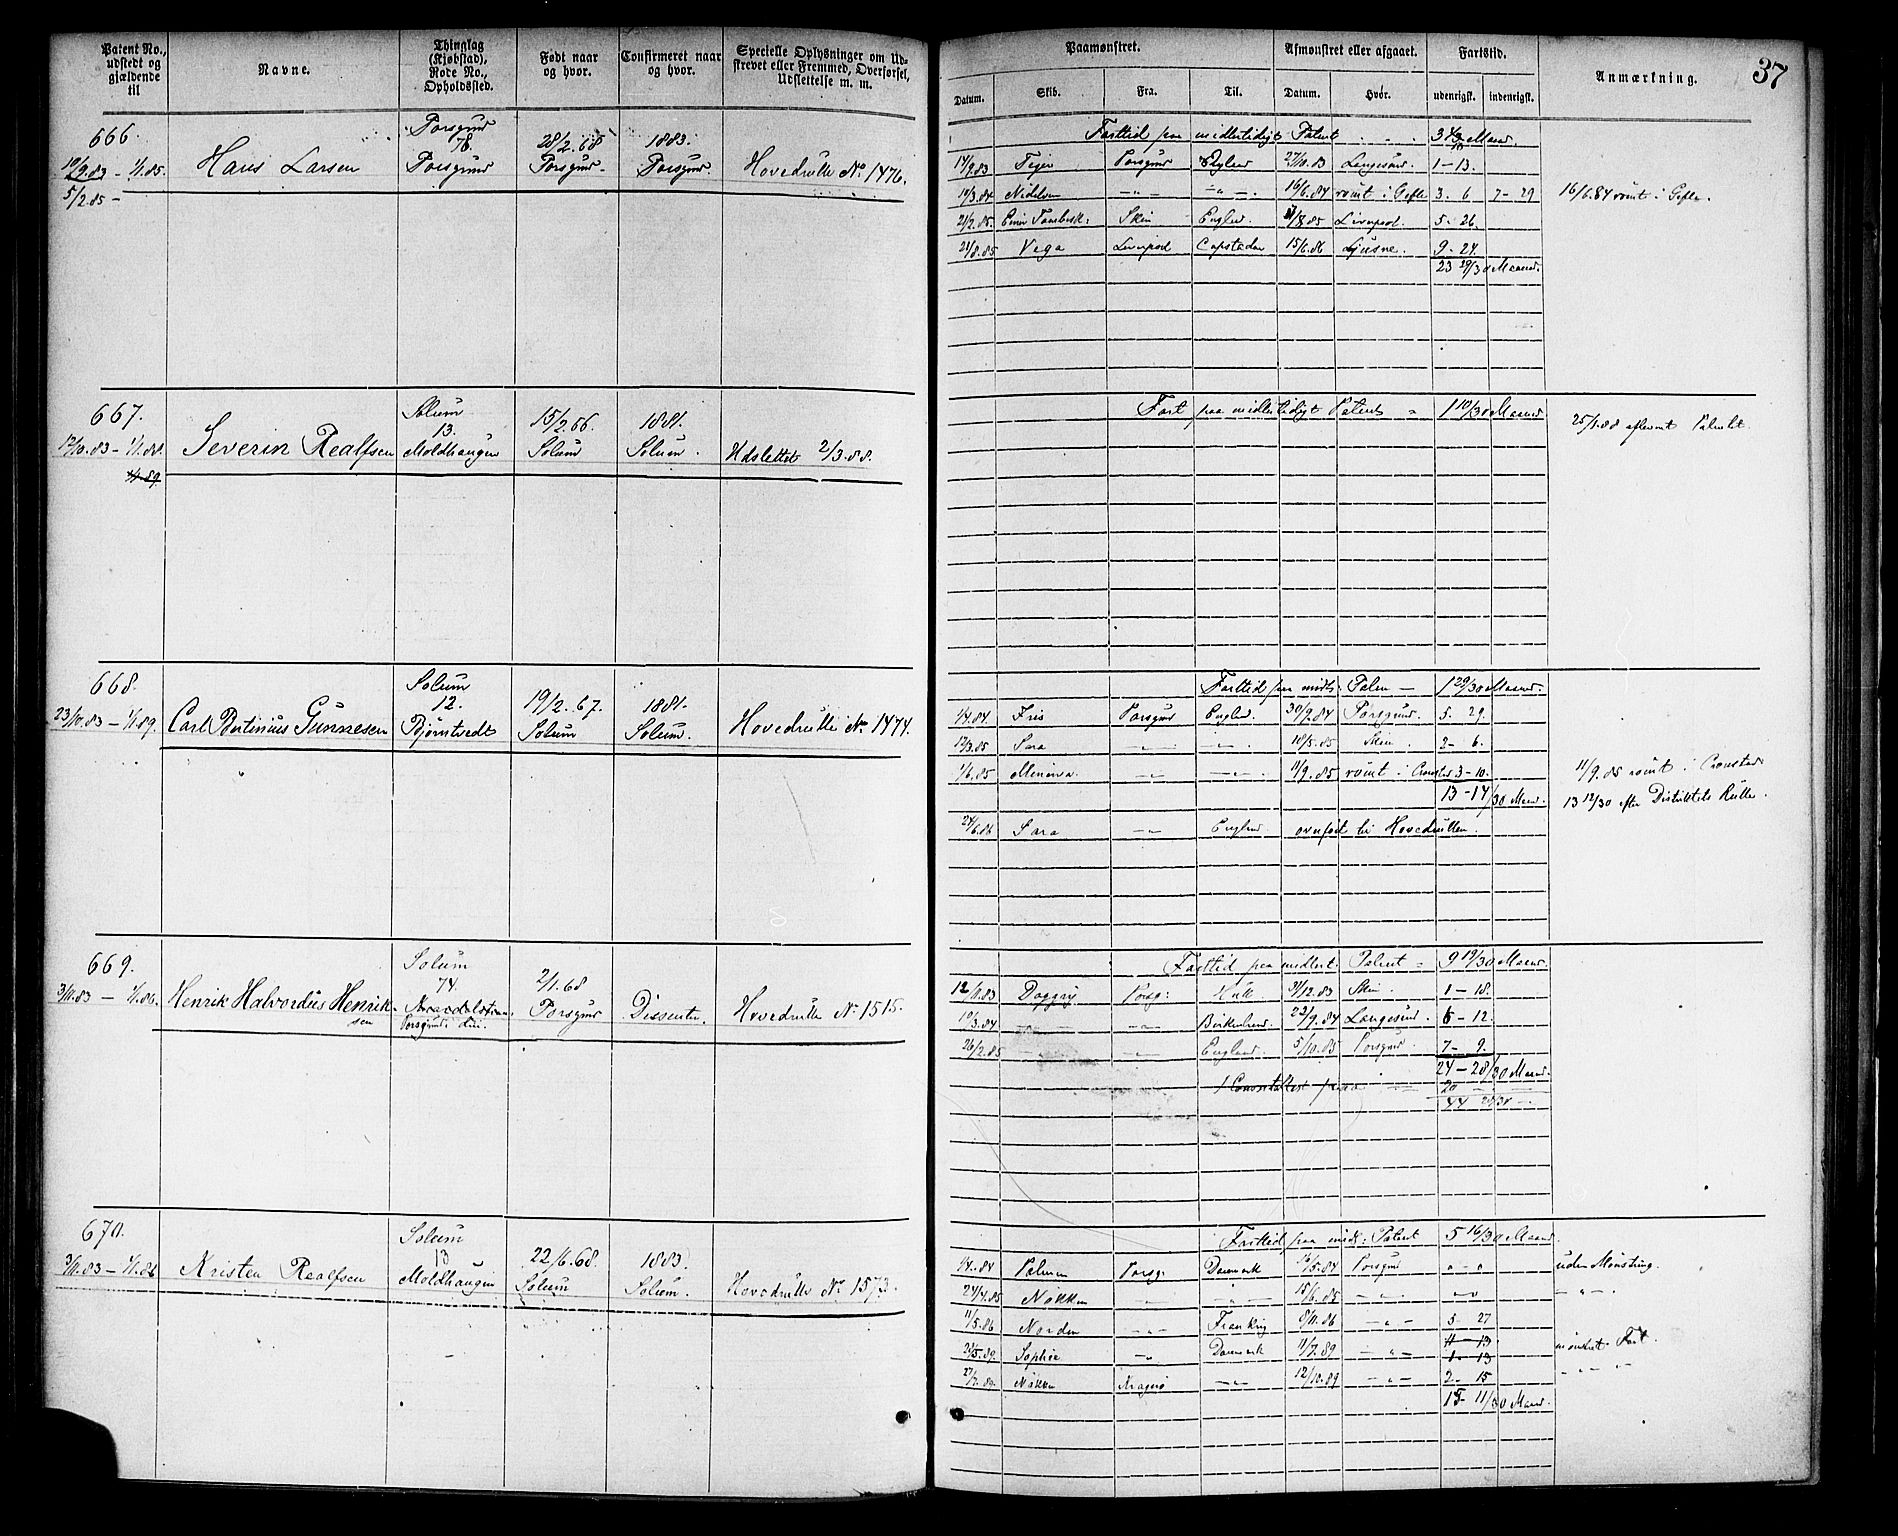 37
Patent No., udstedt og gjældende til
Navne.
Thinglag (Kjøbstad), Rode No., Opholdssted.
Født naar og hvor.
Confirmeret naar og hvor.
Specielle Oplysninger om Udskrevet eller Fremmed, Overførsel, Udslettelse m. m.
Paamønstret.
Afmønstret eller afgaaet.
Fartstid.
Anmærkning.
Datum. Skib. Fra. Til. Datum. Hvor. udenrigsk. indenrigsk.
666.
10/9.83 - 1/1.85.
5/2 85 -
Hans Larsen
Porsgrund
78.
Porsgrund
28/2.68
Porsgrund
1883.
Porsgrund.
Hovedrulle No 1476.
Farttid paa midlertidigt Patent
14/9.83 Porsgrund England 27/10.83 Langesund. 1-13.
19/3.84 Nidelven -"- -"- 16/6.84 rømt i Gefle 3. 6 7-29 16/6.84 rømt i Gefle.
21/2.85. Skien England. Liverpool. 5-26.
21/8.85 Vega Liverpool Capstaden 15/6.86 Ljusne. 9-24.
23 29/30 Maaned.
667.
17/10.83 - 1/1.88.
1/1.89.
Severin Realfsen
Solum
13.
Moldhaugen
15/2.66.
Solum
1881.
Solum.
Udslettet 2/3.88.
Fart paa midlertidigt Patent = 1 10/30 Maaned
25/1.88 afleveret Patentet.
668.
23/10.83 - 1/1.89.
Carl Bertinius Gunnesen
Solum
12.
Bjørntvedt
19/2.67.
Solum
1881.
Solum.
Hovedrulle No 1474.
Farttid paa midl: Patent - 1 29/30 Maaned.
1/4.84. Fris Porsgrund England. 30/9.84 Porsgrund. 5. 29.
17/3.85 Sara -"- -"- 18/5.85 Skien. 2- 6.
1/6.85 Minerva. -"- -"- 11/9.85 rømt i Cronstad 3-10. 11/9.85 rømt i Cronstad
13-14/30 Maaned. 13 12/30 efter Distriktets Rulle.
24/6.86 Sara -"- England overført til Hovedrullen.
669.
3/11.83 - 1/1.86.
Henrik Halvordus Henriksen
Solum
74.
2/1.68
Porsgrund
Dissenter.
Hovedrulle No 1515.
Farttid paa midlert. Patent = 9 19/30 Maaned.
12/11.83 Daggry Porsg: Hull 31/12.83 Skien. 1-18.
10/3.84 -"- -"- Birkenhead. 23/9.84 Langesund. 6-12.
26/2.85 -"- -"- England. 5/10.85 Porsgrund. 7- 9.
24-28/30 Maaned.
20
44 28/30 -
670.
3/11.83 - 1/1.86
Kristen Realfsen
Solum
13
Moldhaugen
22/6.68.
Solum
1883.
Solum.
Hovedrulle No 1573.
Farttid paa midl: Patent 5 16/30 Maaned.
1/4.84 Porsg: Danmark 16/5.84 Porsgrund "-" uden Mønstring.
24/4.85 Nøkken -"- -"- 15/6.85 -"- "-" -"-
11/5.86 Norden -"- Frankrig 8/11.86 -"- 5- 27
Sophie -"- Danmark 11/7.89 -"- 1- 13 mønstret Fart.
Nøkken Kragerø -"- 12/10.89 -"- 2- 15 -"-
15- 11/30 Maaned.